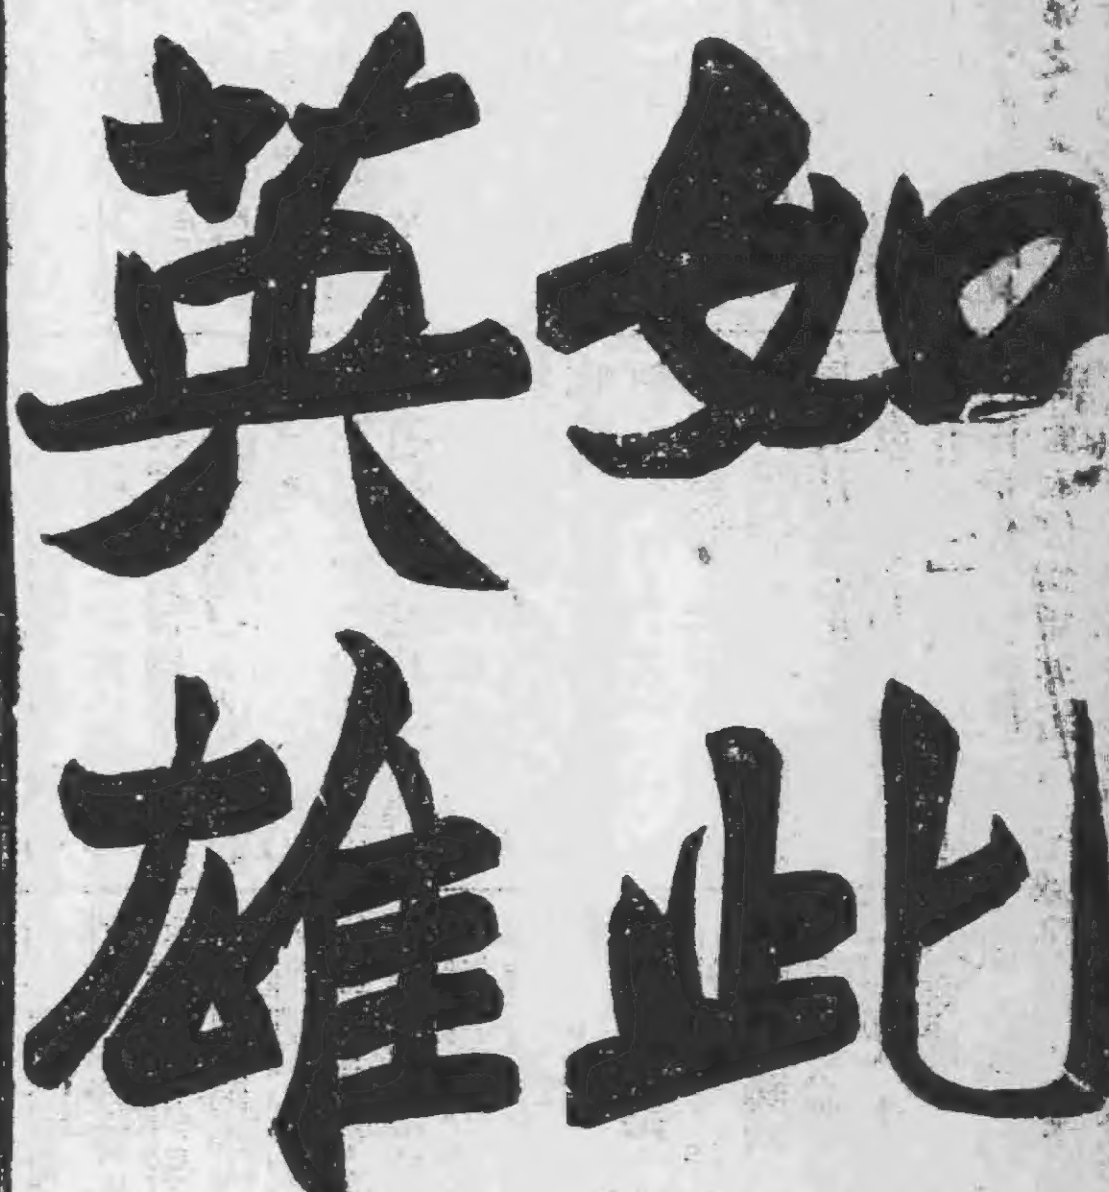 如此
英雄